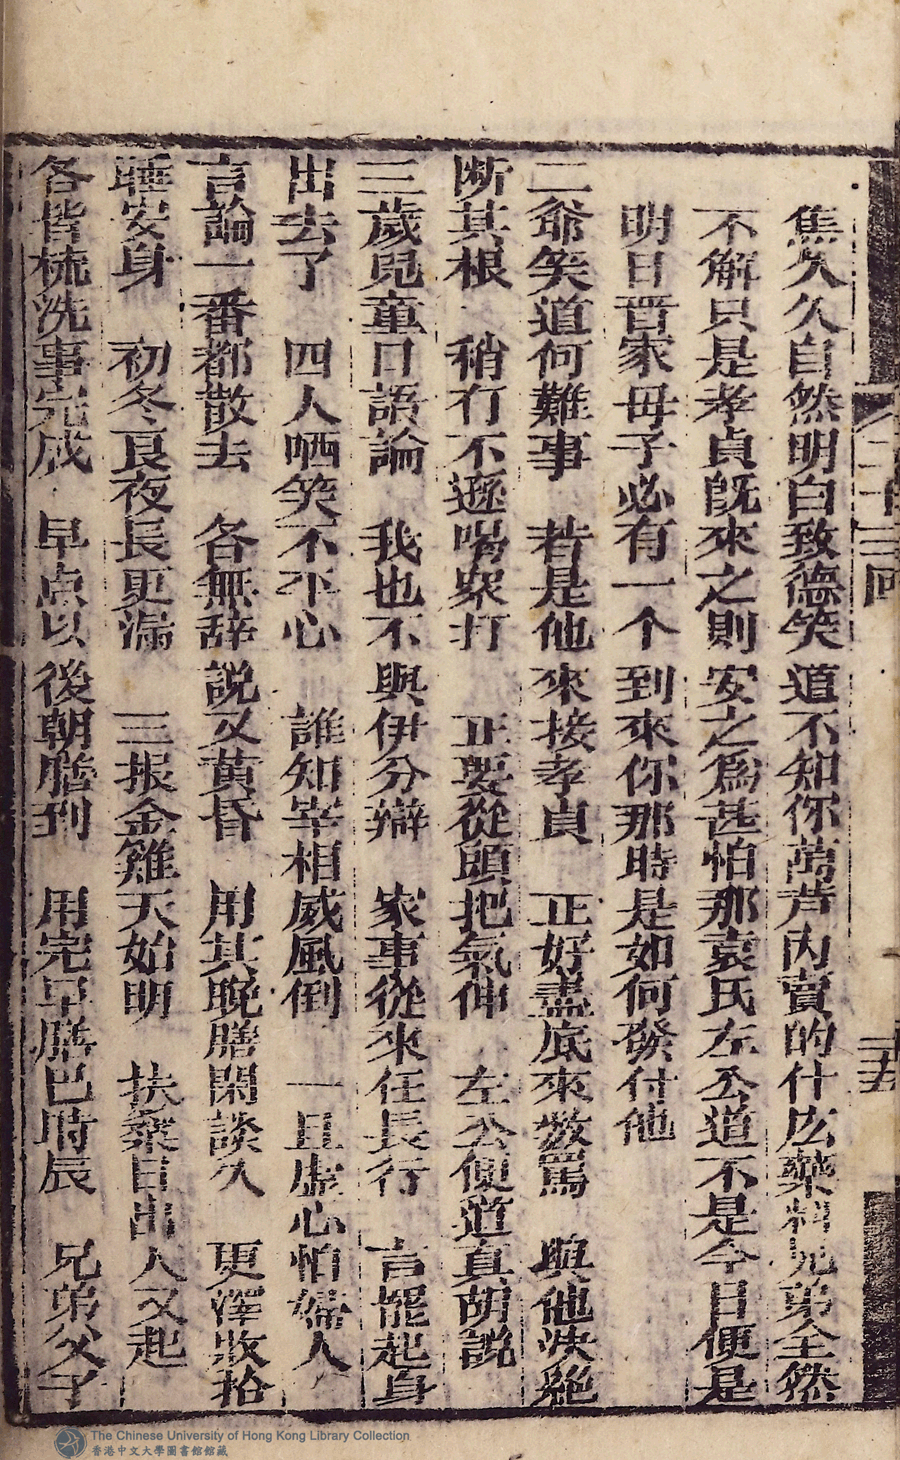 焦久久自然明白致德笑道不知你葫芦内賣的什庅藥料兄弟全然
不解只是孝貞既來之則安之爲甚怕那袁氏左公道不是今日便是
明日晋家母子必有一个到來你那時是如何發付他
二爷笑道何難事 若是他來接孝貞 正好盡底來数罵 與他决絕
断其根 稍有不遜喝衆打 正要從頭把氣伸 左公便道真胡說
三歲兒童日語論 我也不與伊分辯 家事從來任長行 言罷起身
出去了 四人哂笑不平心 誰知宰相威風倒 一旦虚心怕婦人
言論一番都散去 各無辞說又黄昏 用其晚膳閑談久 更深收拾
睡安身 初冬良夜長更漏 三报金雞天始明 扶桑日出人又起
各皆梳洗事完成 早点以後朝膳到 用完早膳巳時辰 兄弟父子
二十三回
二五
The Chinese University of Hong Kong Library Collection
香港中文大學圖書館館藏